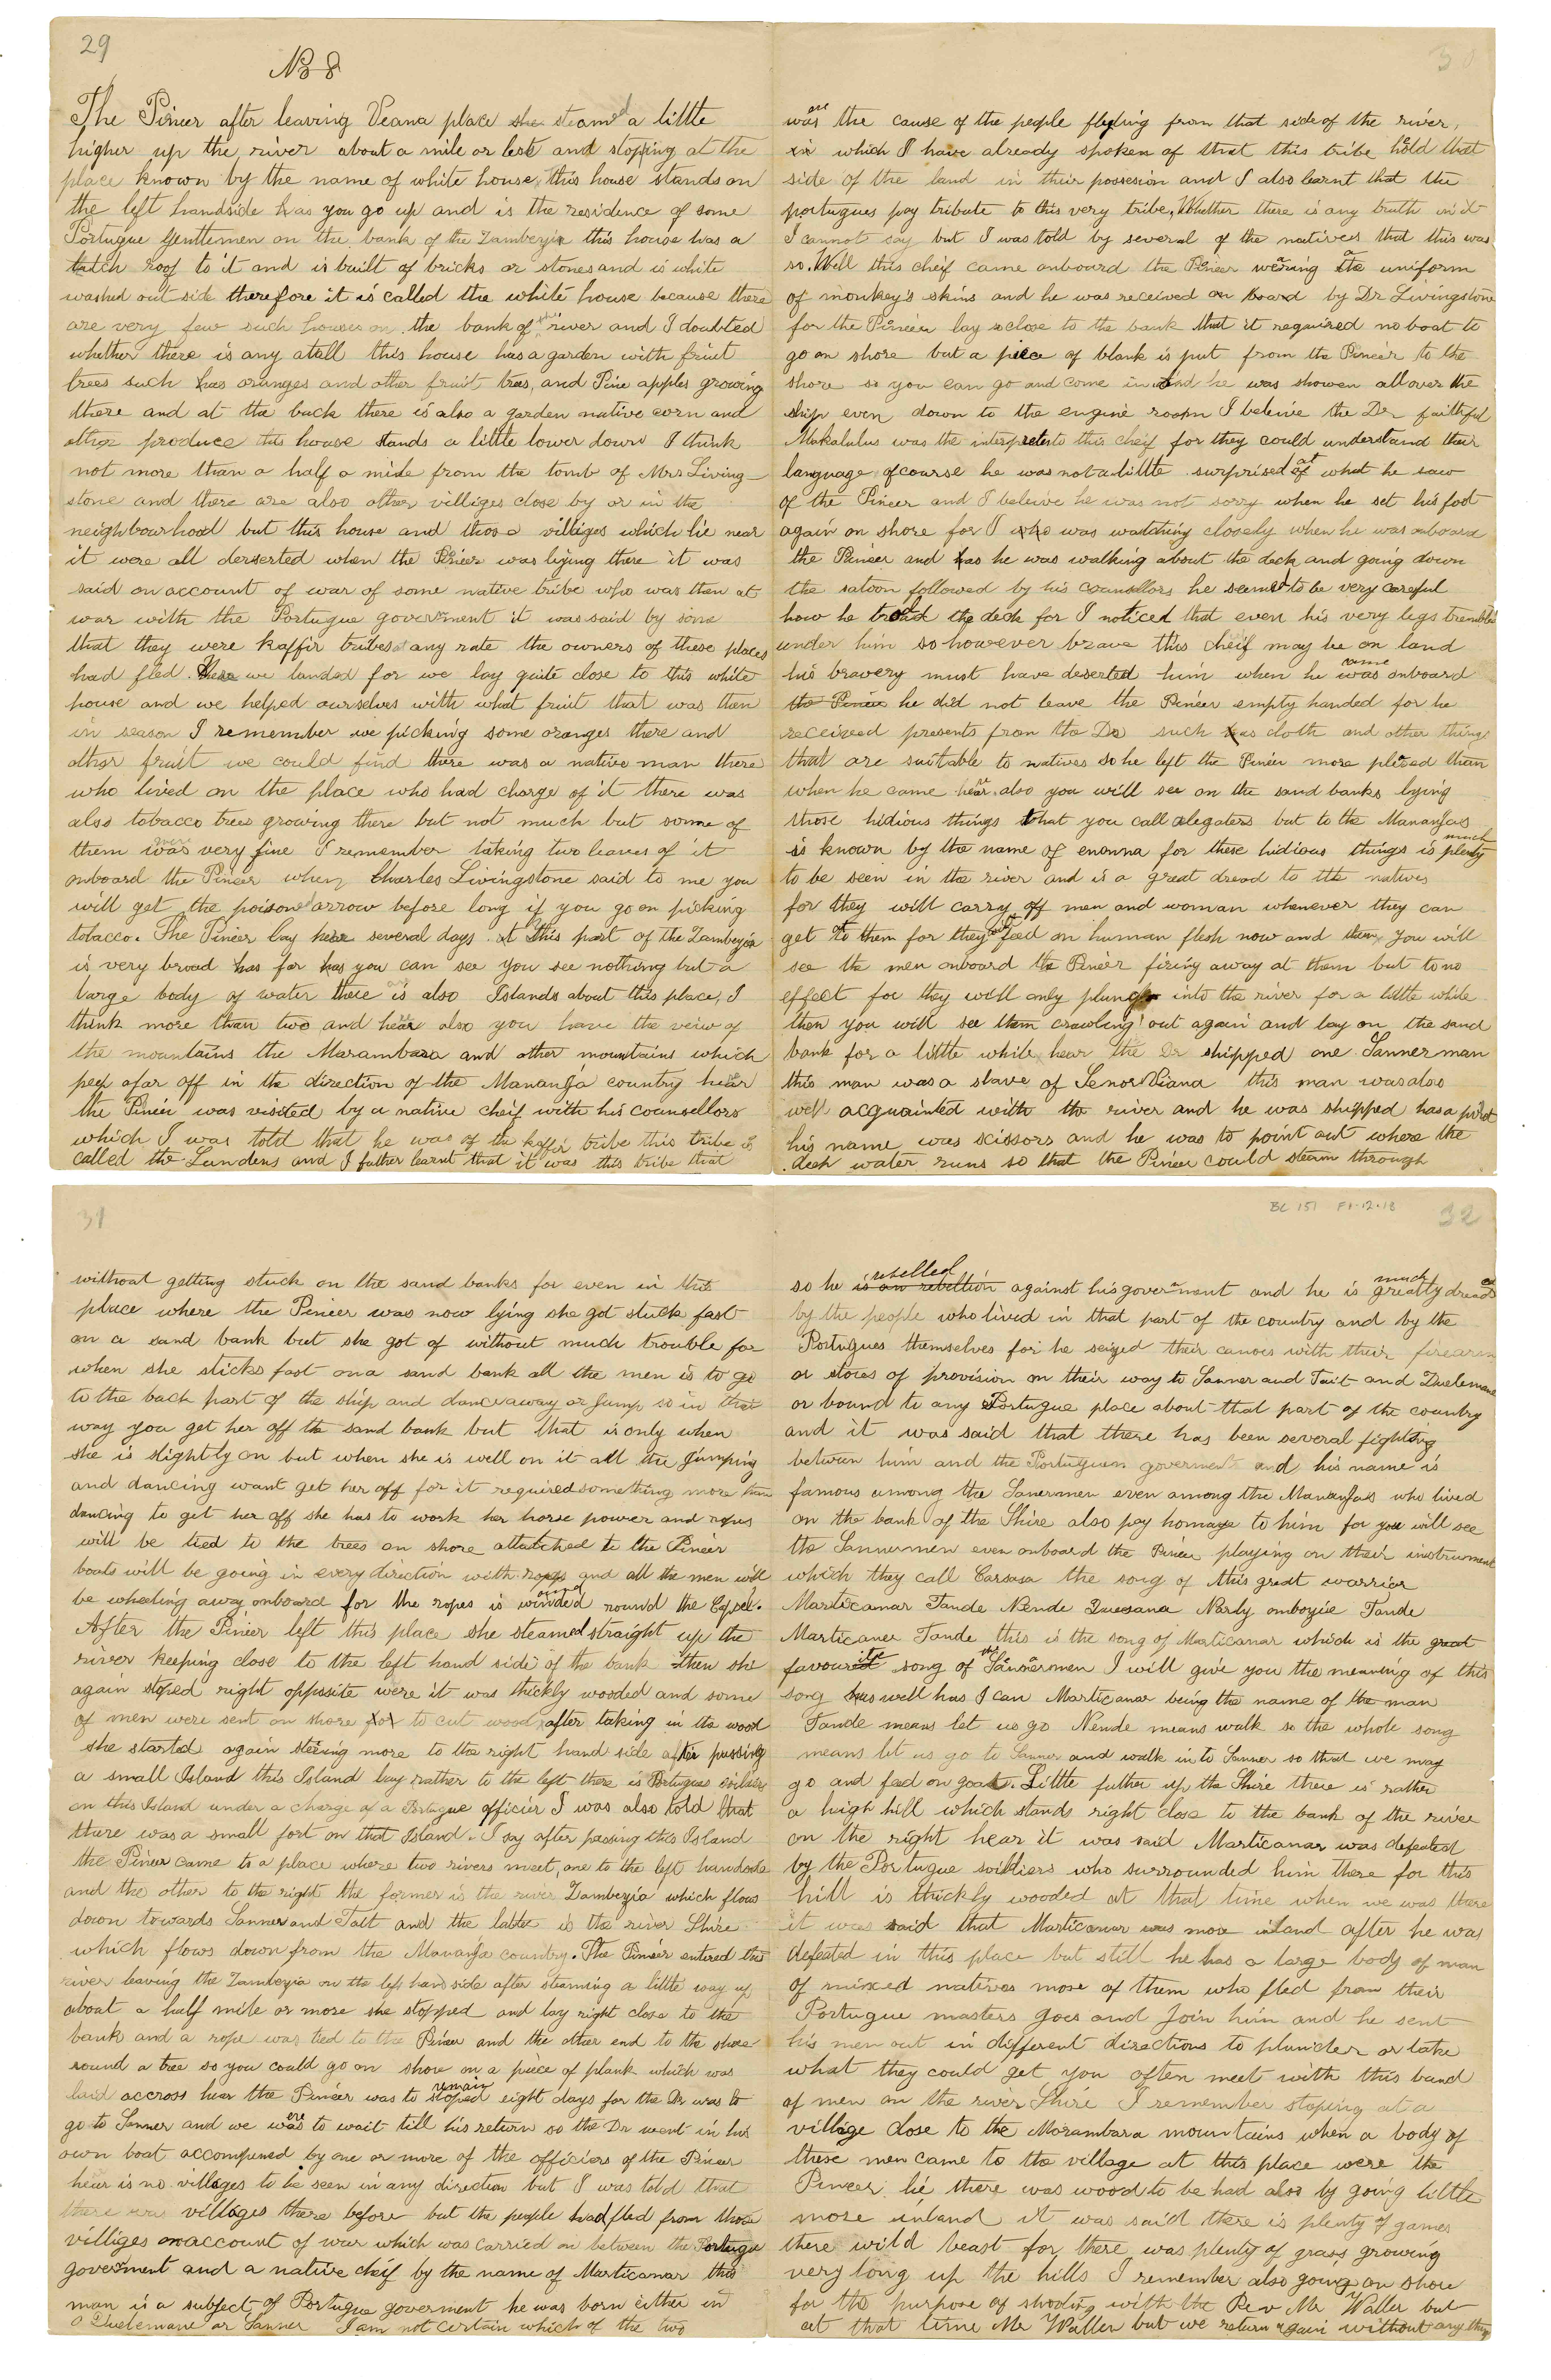 29
No 8
The Pineer after leaving Veana place she steamed a little
higher up the river about a mile or lest and stopping at the
place known by the name of white house this house stands on
the left handside has you go up and is the residence of some
Portugue Genttemen on the bank of the Zambezia this house has a
tatch roof to it and is built of bricks or stones and is white
washed out side therefore it is called the white house because there
are very few such houses on the bank of the river and I doubted
whether there is any atall this house has a garden with friut
trees such has oranges and other fruit trees, and Pine apples growing
there and at the back there is also a garden native corn and
other produce this house stands a little lower down I think
not more than a half a mile from the tomb of Mrs Living-
stone and there are also other villiges close by or in the
neighbourhood but this house and those villiges which lie near
it were all derserted when the Pineer was lying there it was
said on account of war of some native tribe who was then at
war with the Portugue goverment it was said by some
that they were kaffir tribes at any rate the owners of these places
had fled. Here we landed for we lay quite close to this white
house and we helped ourselves with what fruit that was then
in season I remember we picking some oranges there and
other fruit we could find there was a native man there
who lived on the place who had charge of it there was
also tobacco trees growing there but not much but some of
them was very fine I remember taking two leaves of it
onboard the Pineer when Charles Livingstone said to me you
will get the poisoned arrow before long if you go on picking
tobacco. The Pineer lay here several days at this part of the Zambezia
is very broad has far has you can see you see nothing but a
large body of water there is also Islands about this place, I
think more than two and hear also you have the view of
the mountains the Marambara and other mountains which
peep afar off in the direction of the Mananja country hear
the Pineer was visited by a native cheif with his counsellors
which I was told that he was of the kaffir tribe this tribe is
called the Landens and I futher learnt that it was this tribe that
30
was are the cause of the people flyding from that side of the river,
in which I have already spoken of that this tribe hold that
side of the land in their possesion and I also learnt that the
portugues pay tribute to this very tribe, Whether there is any truth in it
I cannot say but I was told by several of the natives that this was
so. Well this cheif came onboard the Pineer wearing the uniform
of monkey's skins and he was received on board by Dr Livingstone
for the Pineer lay so close to the bank that it required no boat to
go on shore but a piece of blank is put from the Pineer to the
shore so you can go and come in and he was showen all over the
ship even down to the engine room I beleive the Dr faithful
Makalulus was the interpreter to this cheif for they could understand their
language ofcourse he was not a little surprised at what he saw
of the Pineer and I beleive he was not sorry when he set his foot
again on shore for I who was watching closely when he was onboard
the Pineer and has he was walking about the deck and going down
the saloon followed by his counsellors he seemed to be very careful
how he trod the deck for I noticed that even his very legs trembled
under him so however brave this cheif may be on land
his bravery must have deserted him when he was came onboard
the Pineer he did not leave the Pineer empty handed for he
received presents from the Dr such has cloth and other things
that are suitable to natives so he left the Pineer more plesed than
when he came hear also you will see on the sand banks lying
those hidious things that you call alegaters but to the Mananjas
is known by the name of enonna for these hidious things is much plenty
to be seen in the river and is a great dread to the natives
for they will carry off men and woman whenever they can
get at them for they feed on human flesh now and then you will
see the men onboard the Pineer firing away at them but to no
effect for they will only plunge into the river for a little while
then you will see them crawling out again and lay on the sand
bank for a little while hear the Dr shipped one Sannerman
this man was a slave of Senor Viana this man was also
well acquainted with the river and he was shipped has a pilot
his name was scissors and he was to point out where the
deep water runs so that the Pineer could steam through
31
without getting stuck on the sand banks for even in this
place where the Pineer was now lying she got stuck fast
on a sand bank but she got of without much trouble for
when she sticks fast on a sand bank all the men is to go
to the back part of the ship and dance away or Jump so in that
way you get her off the sand bank but that is only when
she is slightly on but when she is well on it all the Jumping
and dancing want get her off for it required something more than
dancing to get her off she has to work her horse power and ropes
will be tied to the trees on shore attatched to the Pineer
boats will be going in every direction with ropes and all the men will
be wheeling away onboard for the ropes is winded round the Capsel.
After the Pineer left this place she steamed straight up the
river keeping close to the left hand side of the bank then she
again stoped right opposite were it was thickly wooded and some
of men were sent on shore for to cut wood, after taking in the wood
she started again steering more to the right hand side after passing
a small Island this Island lay rather to the left there is Portugues soilders
on this Island under a charge of a Portugue officier I was also told that
there was a small fort on that Island. I say after passing this Island
the Pineer came to a place where two rivers meet, one to the left handside
and the other to the right the former is the river Zambezia which flows
down towards Sanner and Tait and the latter is the river Shire
which flows down from the Mananja country. The Pineer entired the
river leaving the Zambezia on the left hand side after steaming a little way up
about a half mile or more she stopped and lay right close to the
bank and a rope was tied to the Pineer and the other end to the shore
round a tree so you could go on shore on a piece of plank which was
laid accross hear the Pineer was to stoped remain eight days for the Dr was to
go to Sanner and we were to wait till his return so the Dr went in his
own boat accompned by one or more of the officiers of the Pineer
hear is no villages to be seen in any direction but I was told that
there was villages there before but the people had fled from those
villiges on account of war which was carried on between the Portugue
goverment and a native cheif by the name of Marticanar this
man is a subject of Portugue goverment he was born either in
Quelemane or Sanner I am not certain which of the two
BC 151 F1.12.18
32
so he is an rebellion rebelled against his goverment and he is much greatly dreaded
by the people who lived in that part of the country and by the
Portugues themselves for he seized their canoes with their firearms
or stores of provision on their way to Sanner and Tait and Quelemane
or bound to any Portugue place about that part of the country
and it was said that there has been several fighting
between him and the Portuguse goverment and his name is
famous among the Sanermen even among the Mananjas who lived
on the bank of the Shire also pay homage to him for you will see
the Sannermen even onboard the Pineer playing on their instrument
which they call Carsasa the song of this great warrior
Marticanar Tande Nende Quesana Nardy omboyie Tande
Marticaner Tande this is the song of Marticanar which is the great
favourite song of the Sannermen I will give you the meaning of this
song has well has I can Marticanar being the name of the man
Tande means let us go Nende means walk so the whole song
means let us go to Sanner and walk in to Sanner so that we may
go and feed on goat. Little futher up the Shire there is rather
a high hill which stands right close to the bank of the river
on the right hear it was said Marticanar was defeated
by the Portugue soilders who surrounded him there for this
hill is thickly wooded at that time when we was there
it was said that Marticanar was more inland after he was
defeated in this place but still he has a large body of man
of mixed natives more of them who fled from their
Portugue masters goes and Join him and he sent
his men out in different directions to plunder or take
what they could get you often meet with this band
of men on the river Shire I remember stoping at a
village close to the Morambara mountains when a body of
these men came to the village at this place were the
Pineer lie there was wood to be had also by going little
more inland it was said there is plenty of games
there wild beast for there was plenty of grass growing
very long up the hills I remember also going on shore
for the purpose of shooting with the Rev Mr Waller but
at that time Mr Waller but we return again without any thing